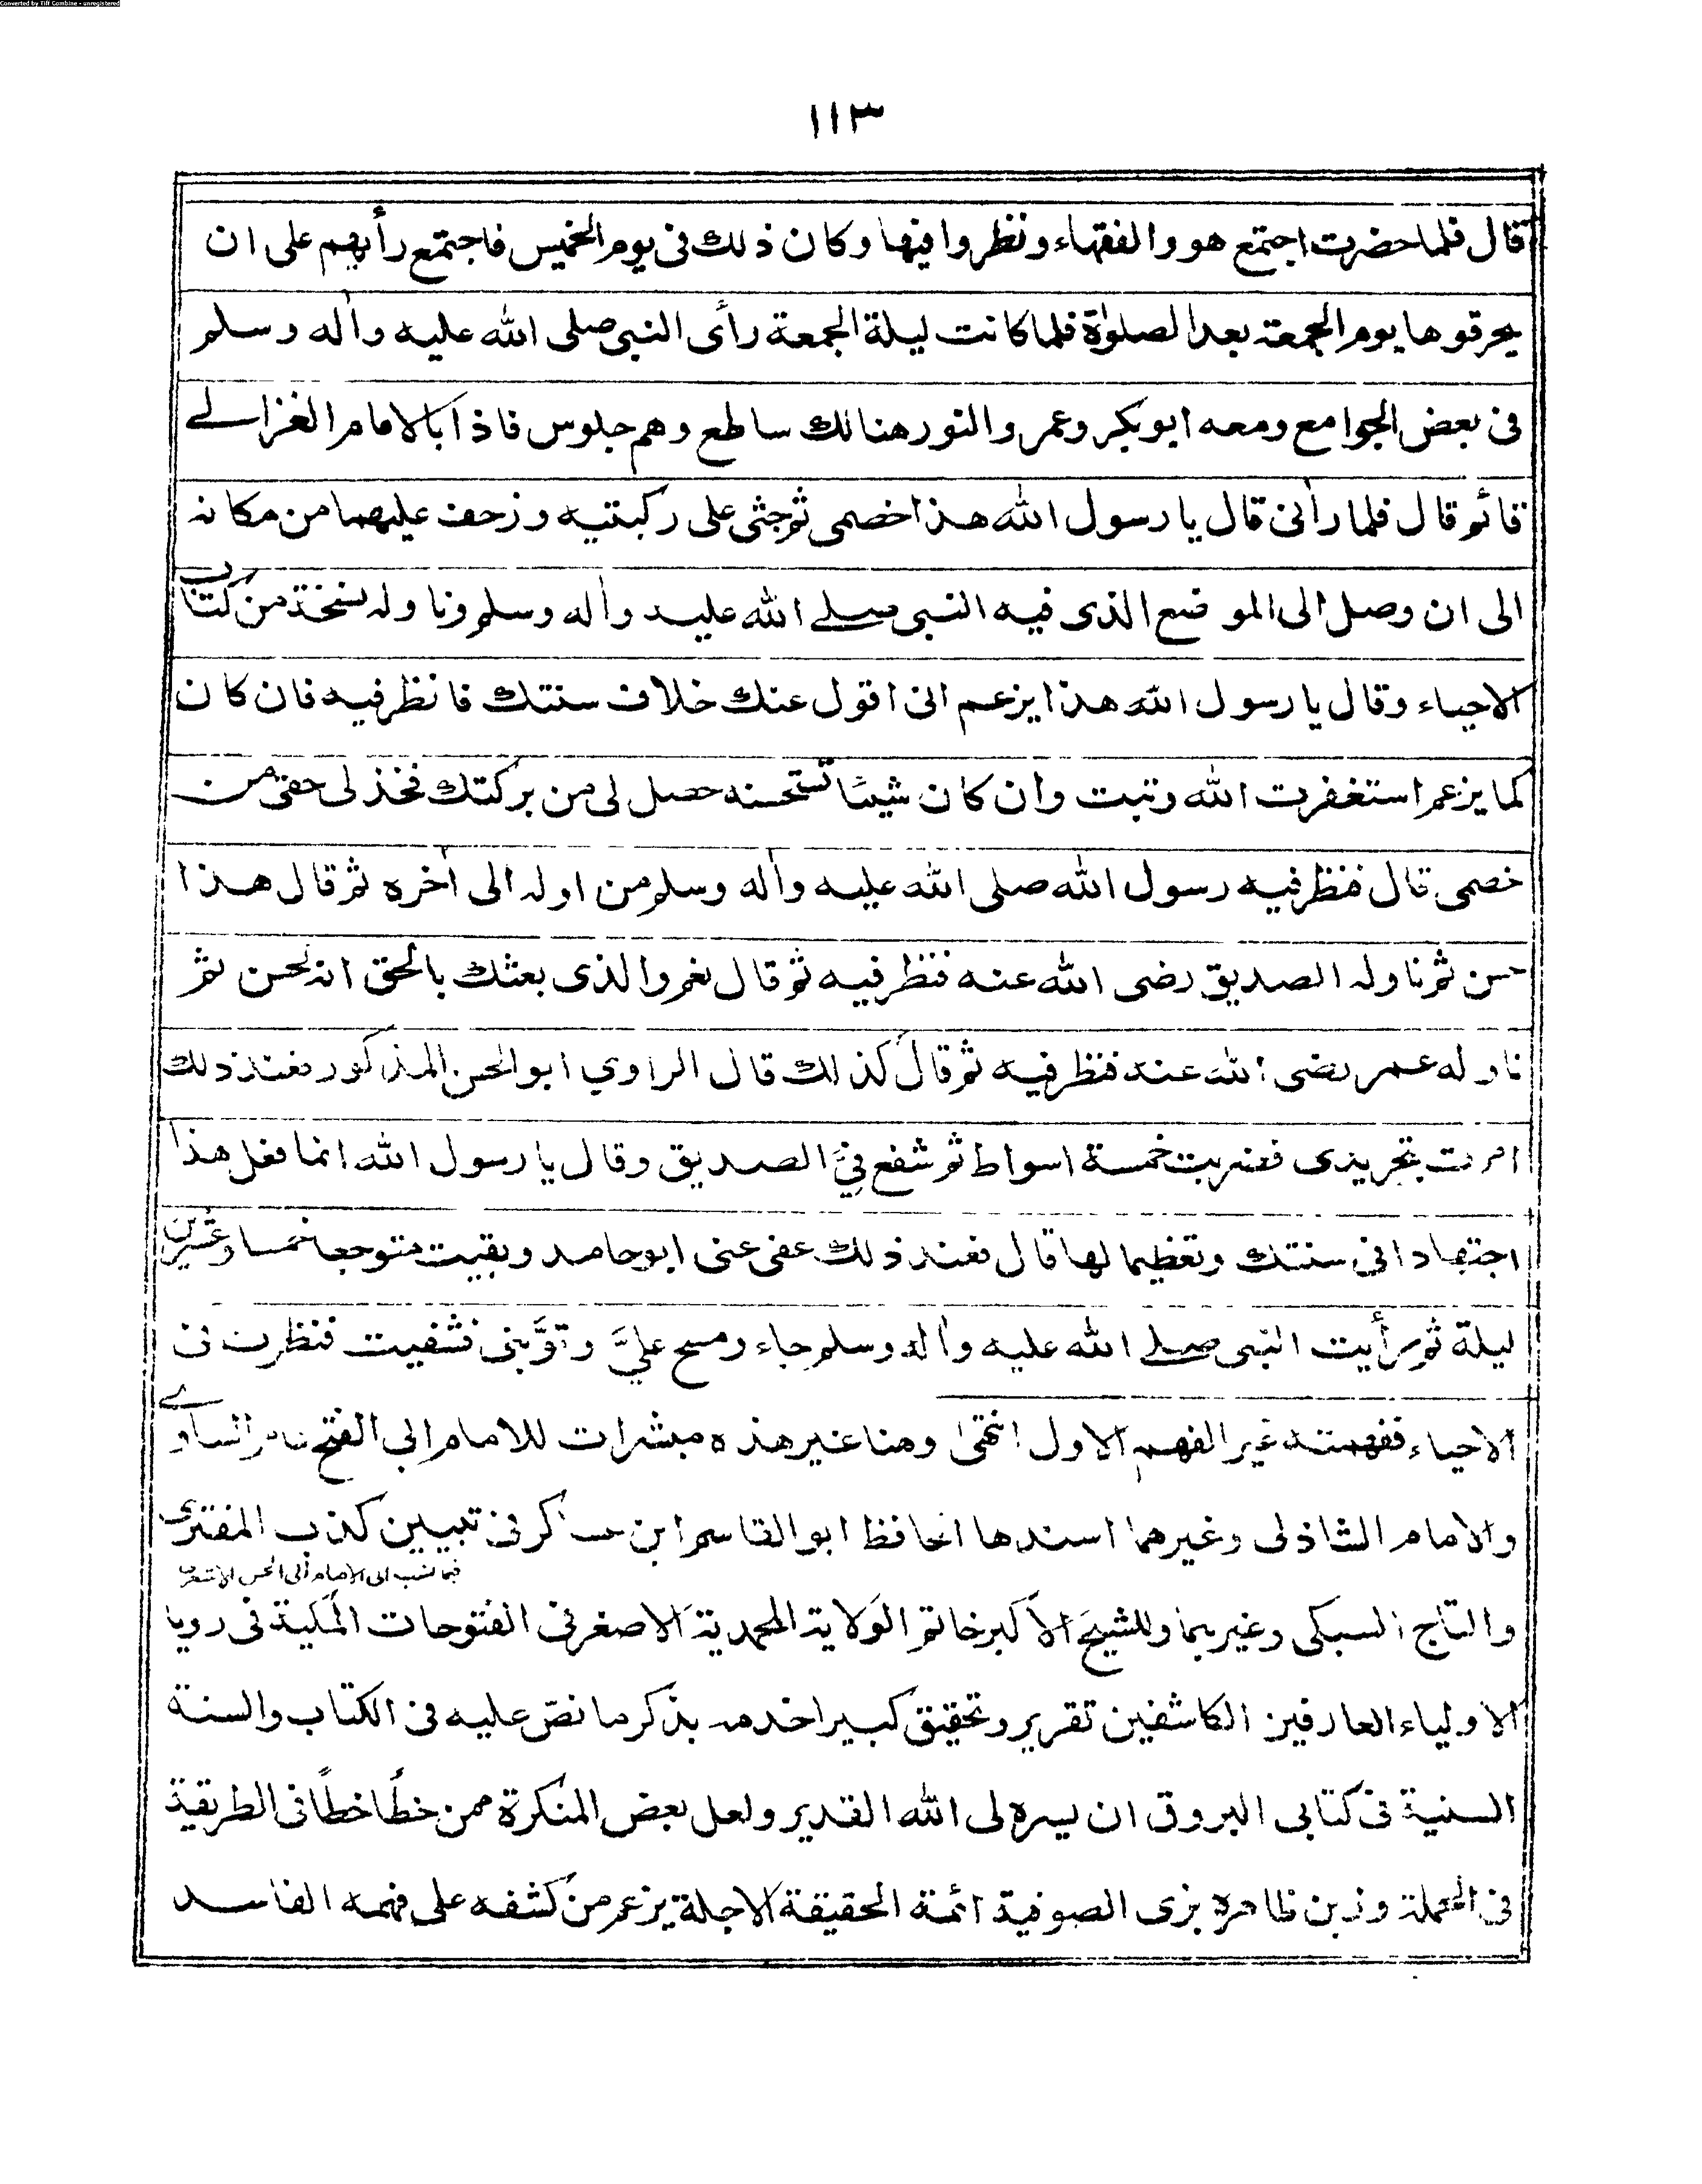 Converted by Tiff Combine - unregistered
١١٣
قال فلما حضرت اجتمع هو والفقهاء ونظروا فيها وكان ذلك فى يوم الخميس فاجتمع رأيهم على ان
يحرقوها يوم الجمعة بعد الصلوٰة فلما كانت ليلة الجمعة رأى النبى صلى الله عليه واٰله وسلم
فى بعض الجوامع ومعه ابوبكر وعمر والنور هنالك ساطع وهم جلوس فاذا بالامام الغزالے
قائم قال فلما راٰنى قال يا رسول الله هذا خصمى ثم جثى على ركبتيه وزحف عليهما من مكانه
الى ان وصل الى الموضع الذى فيه النبى صلے الله عليه واٰله وسلم وناوله نسخة من كتاب
الاحياء وقال يا رسول الله هذا يزعم انى اقول عنك خلاف سنتك فانظر فيه فان كان
كما يزعم استغفرت الله وتبت وان كان شيئا تستحسنه حصل لى من بركتك فخذ لى حقى من
خصمى قال فنظر فيه رسول الله صلى الله عليه واٰله وسلم من اوله الى اٰخره ثم قال هذا
حسن ثم ناوله الصديق رضى الله عنه فنظر فيه ثم قال نعم والذى بعثك بالحق انه لحسن ثم
ناوله عمر رضى الله عنه فنظر فيه ثم قال كذلك قال الراوي ابو الحسن المذكور فعند ذلك
امرت بتجريدى فضربت خمسة اسواط ثم شفع فيَّ الصديق وقال يا رسول الله انما فعل هذا
اجتهادا فى سنتك وتعظيما لها قال فعند ذلك عفى عنى ابو حامد وبقيت متوجعا خمسا وعشرين
ليلة ثم رأيت النبى صلے الله عليه واٰله وسلم جاء ومسح عليَّ وتوَّبنى فشفيت فنظرت فى
الاحياء ففهمته غير الفهم الاول انتهىٰ وهنا غير هذه مبشرات للامام ابى الفتح الساوے
والامام الشاذلى وغيرهما اسندها الحافظ ابو القاسم ابن عساكر فى تبيين كذب المفترى
فيما نسب الى الامام ابى الحسن الاشعرى
والتاج السبكى وغيرهما وللشيخ الاكبر خاتم الولاية المحمدية الاصغر فى الفتوحات المكية فى رويا
الاولياء العارفين الكاشفين تقرير وتحقيق كبير اخدمه بذكر ما نصّ عليه فى الكتاب والسنة
السنية فى كتابى البروق ان يسره لى الله القدير ولعل بعض المنكرة ممن خطأ خطأ فى الطريقة
فى الجملة وزين ظاهره بزى الصوفية ائمة الحقيقة الاجلة يزعم من كشفه على فهمه الفاسد